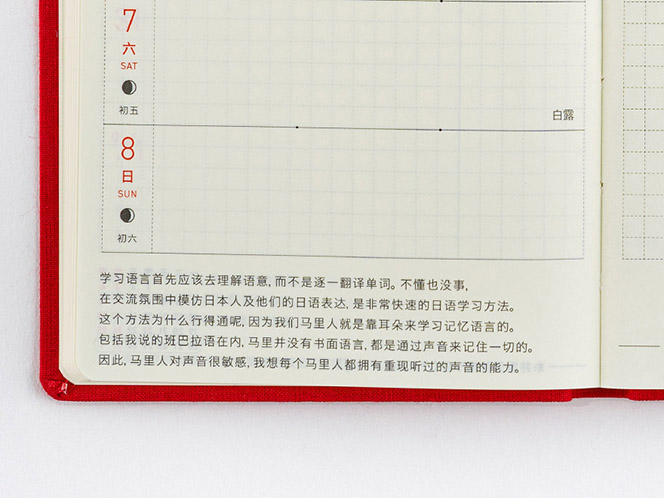 7
六
SAT
初五
白露
8
日
SUN
初六
学习语言首先应该去理解语意, 而不是逐一翻译单词。不懂也没事,
在交流氛围中模仿日本人及他们的日语表达, 是非常快速的日语学习方法。
这个方法为什么行得通呢, 因为我们马里人就是靠耳朵来学习记忆语言的。
包括我说的班巴拉语在内, 马里并没有书面语言, 都是通过声音来记住一切的。
因此, 马里人对声音很敏感, 我想每个马里人都拥有重现听过的声音的能力。